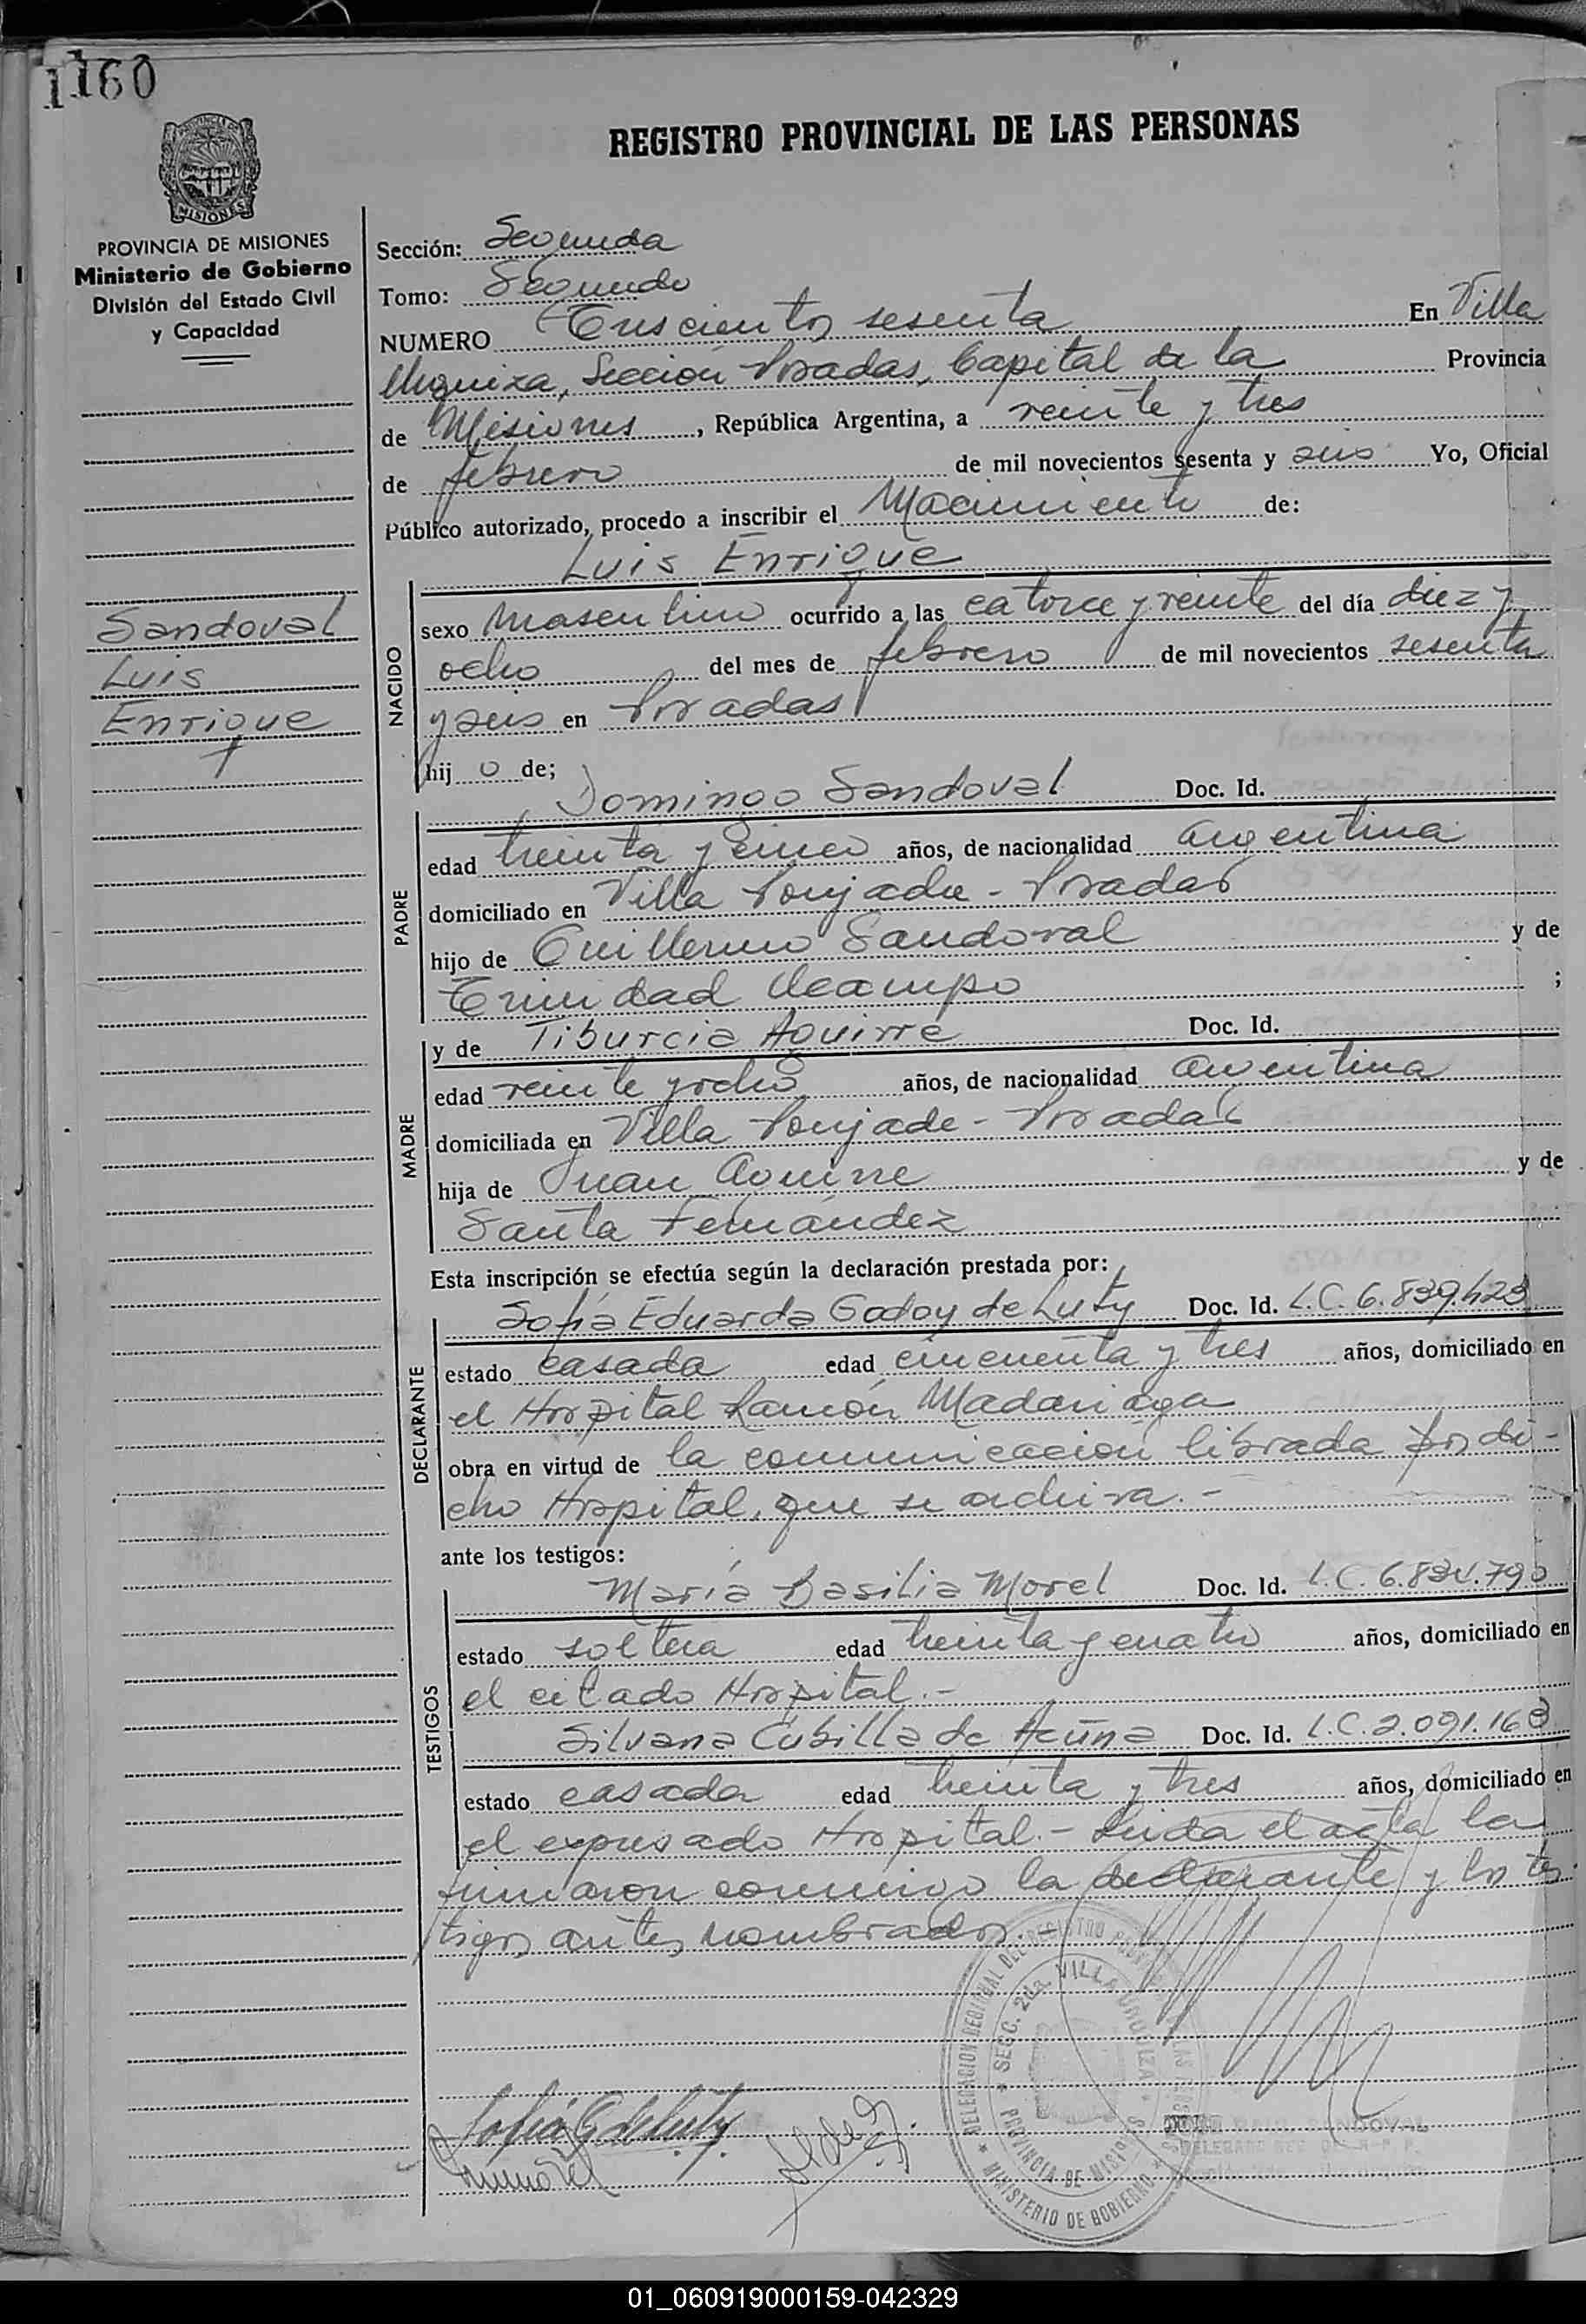 1160
REGISTRO PROVINCIAL DE LAS PERSONAS
MISIONES
PROVINCIA DE MISIONES
Ministerio de Gobierno
División del Estado Civil
y Capacidad
Sandoval
Luis
Enrique
Sección: Segunda
Tomo: Segundo
NUMERO Trescientos sesenta En Villa
Urquiza, Sección Posadas, Capital de la Provincia
de Misiones, República Argentina, a veinte y tres
de febrero de mil novecientos sesenta y seis Yo, Oficial
Público autorizado, procedo a inscribir el Nacimiento de:
Luis Enrique
NACIDO
sexo Masculino ocurrido a las catorce y veinte del día diez y
ocho del mes de febrero de mil novecientos sesenta
y seis en Posadas
hijo de;
Domingo Sandoval Doc. Id.
PADRE
edad treinta y cinco años, de nacionalidad argentina
domiciliado en Villa Poujade - Posadas
hijo de Guillermo Sandoval y de
Trinidad Ocampo ;
y de Tiburcia Aguirre Doc. Id.
MADRE
edad veinte y ocho años, de nacionalidad argentina
domiciliada en Villa Poujade - Posadas
hija de Juan Aguirre y de
Santa Fernández
Esta inscripción se efectúa según la declaración prestada por:
Sofía Eduarda Godoy de Luty Doc. Id. L.C. 6.839.423
DECLARANTE
estado casada edad cincuenta y tres años, domiciliado en
el Hospital Ramón Madariaga
obra en virtud de la comunicación librada por di-
cho Hospital, que se archiva.-
ante los testigos:
María Basilia Morel Doc. Id. L.C.
TESTIGOS
estado soltera edad treinta y cuatro años, domiciliado en
el citado Hospital.-
Silvana Cubilla de Acuña Doc. Id. L.C. 2.091.168
estado casada edad treinta y tres años, domiciliado en
el expresado Hospital.- Leida el acta la
firmaron conmigo la declarante y los tes-
tigos antes nombrados.-
DELEGACION REGIONAL DEL REGISTRO
SECC. 2da. VILLA URQUIZA
PROVINCIA DE MISIONES
MINISTERIO DE GOBIERNO
Sofía G de Luty
SANDOVAL
01_060919000159-042329